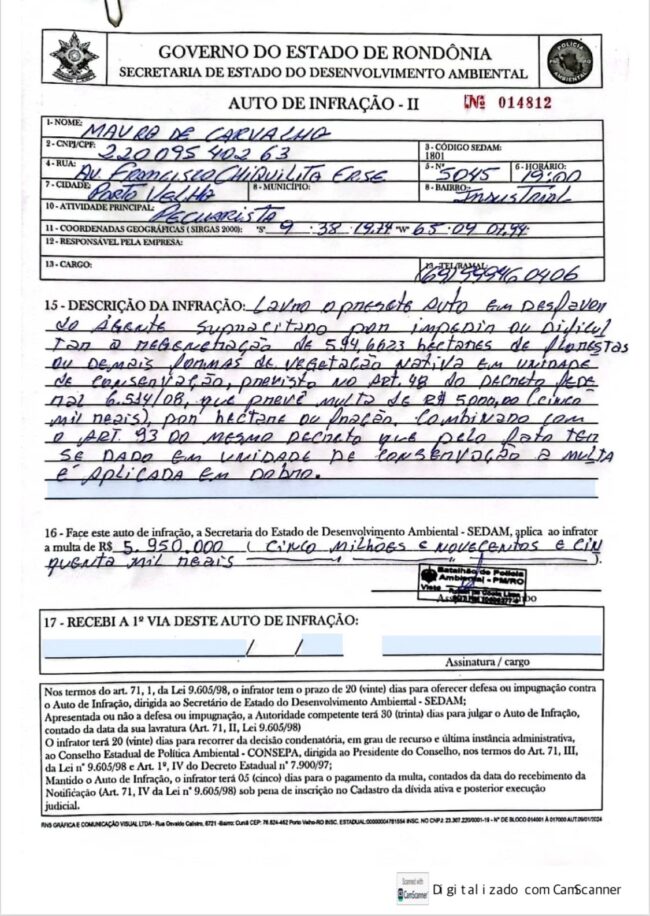 GOVERNO DO ESTADO DE RONDÔNIA
SECRETARIA DE ESTADO DO DESENVOLVIMENTO AMBIENTAL
AUTO DE INFRAÇÃO - II Nº 014812
1- NOME: MAURO DE CARVALHO
2- CNPJ/CPF: 220095 402 63
3 - CÓDIGO SEDAM: 1801
4 - RUA: AV. FRANCISCO CHIQUILITA ERSE
5 - Nº 5045
6 - HORÁRIO: 19:00
7 - CIDADE: PORTO VELHO
8 - MUNICÍPIO:
8 - BAIRRO: INDUSTRIAL
10 - ATIVIDADE PRINCIPAL: PECUARISTA
11 - COORDENADAS GEOGRÁFICAS ( SIRGAS 2000): "S" 9 · 38 · 19.74 "W" 65 · 09 07,94
12 - RESPONSÁVEL PELA EMPRESA:
13 - CARGO:
TEL/RAMAL: (69) 99946 0406
15 - DESCRIÇÃO DA INFRAÇÃO: LAVRO O PRESETE AUTO EM DESFAVOR
DO AGENTE SUPRACITADO POR IMPEDIR OU DIFICUL
TAR A REGENERAÇÃO DE 594,6623 HECTARES DE FLORESTAS
OU DEMAIS FORMAS DE VEGETAÇÃO NATIVA EM UNIDADE
DE CONSERVAÇÃO, PREVISTO NO ART. 48 DO DECRETO FEDE
RAL 6.514/08, QUE PREVÊ MULTA DE R$ 5000,00 (CINCO
MIL REAIS), POR HECTARE OU FRAÇÃO. COMBINADO COM
O ART. 93 DO MESMO DECRETO QUE PELO FATO TER
SE DADO EM UNIDADE DE CONSERVAÇÃO A MULTA
É APLICADA EM DOBRO.
16 - Face este auto de infração, a Secretaria do Estado de Desenvolvimento Ambiental - SEDAM, aplica ao infrator
a multa de R$ 5.950.000 ( CINCO MILHÕES E NOVECENTOS E CIN
QUENTA MIL REAIS ).
Batalhão de Polícia
Ambiental - PM/RO
Visto
17 - RECEBI A 1ª VIA DESTE AUTO DE INFRAÇÃO:
/ /
Assinatura / cargo
Nos termos do art. 71, 1, da Lei 9.605/98, o infrator tem o prazo de 20 (vinte) dias para oferecer defesa ou impugnação contra
o Auto de Infração, dirigida ao Secretário de Estado do Desenvolvimento Ambiental - SEDAM;
Apresentada ou não a defesa ou impugnação, a Autoridade competente terá 30 (trinta) dias para julgar o Auto de Infração,
contado da data da sua lavratura (Art. 71, II, Lei 9.605/98)
O infrator terá 20 (vinte) dias para recorrer da decisão condenatória, em grau de recurso e última instância administrativa,
ao Conselho Estadual de Política Ambiental - CONSEPA, dirigida ao Presidente do Conselho, nos termos do Art. 71, III,
da Lei nº 9.605/98 e Art. 1º, IV do Decreto Estadual nº 7.900/97;
Mantido o Auto de Infração, o infrator terá 05 (cinco) dias para o pagamento da multa, contados da data do recebimento da
Notificação (Art. 71, IV da Lei nº 9.605/98) sob pena de inscrição no Cadastro da dívida ativa e posterior execução
judicial.
RNS GRÁFICA E COMUNICAÇÃO VISUAL LTDA - Rua Osvaldo Calistro, 6721 -Bairro: Cuniã CEP: 76.824-452 Porto Velho-RO INSC. ESTADUAL:00000004781554 INSC. NO CNPJ: 23.307.220/0001-19 - Nº DE BLOCO:014001 À 017000 AUT.09/01/2024
Scanned with
CamScanner
Digitalizado com CamScanner